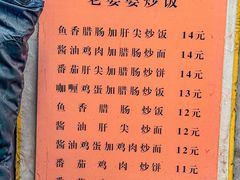 老婆婆炒饭
鱼香腊肠加肝尖炒饭 14元
酱油鸡肉加腊肠炒面 14元
番茄肝尖加鸡肉炒饼 14元
咖喱鸡蛋加腊肠炒饭 13元
鱼香腊肠炒饭 12元
酱油肝尖炒面 12元
酱油鸡蛋加鸡肉炒面 12元
番茄鸡肉炒饼 11元